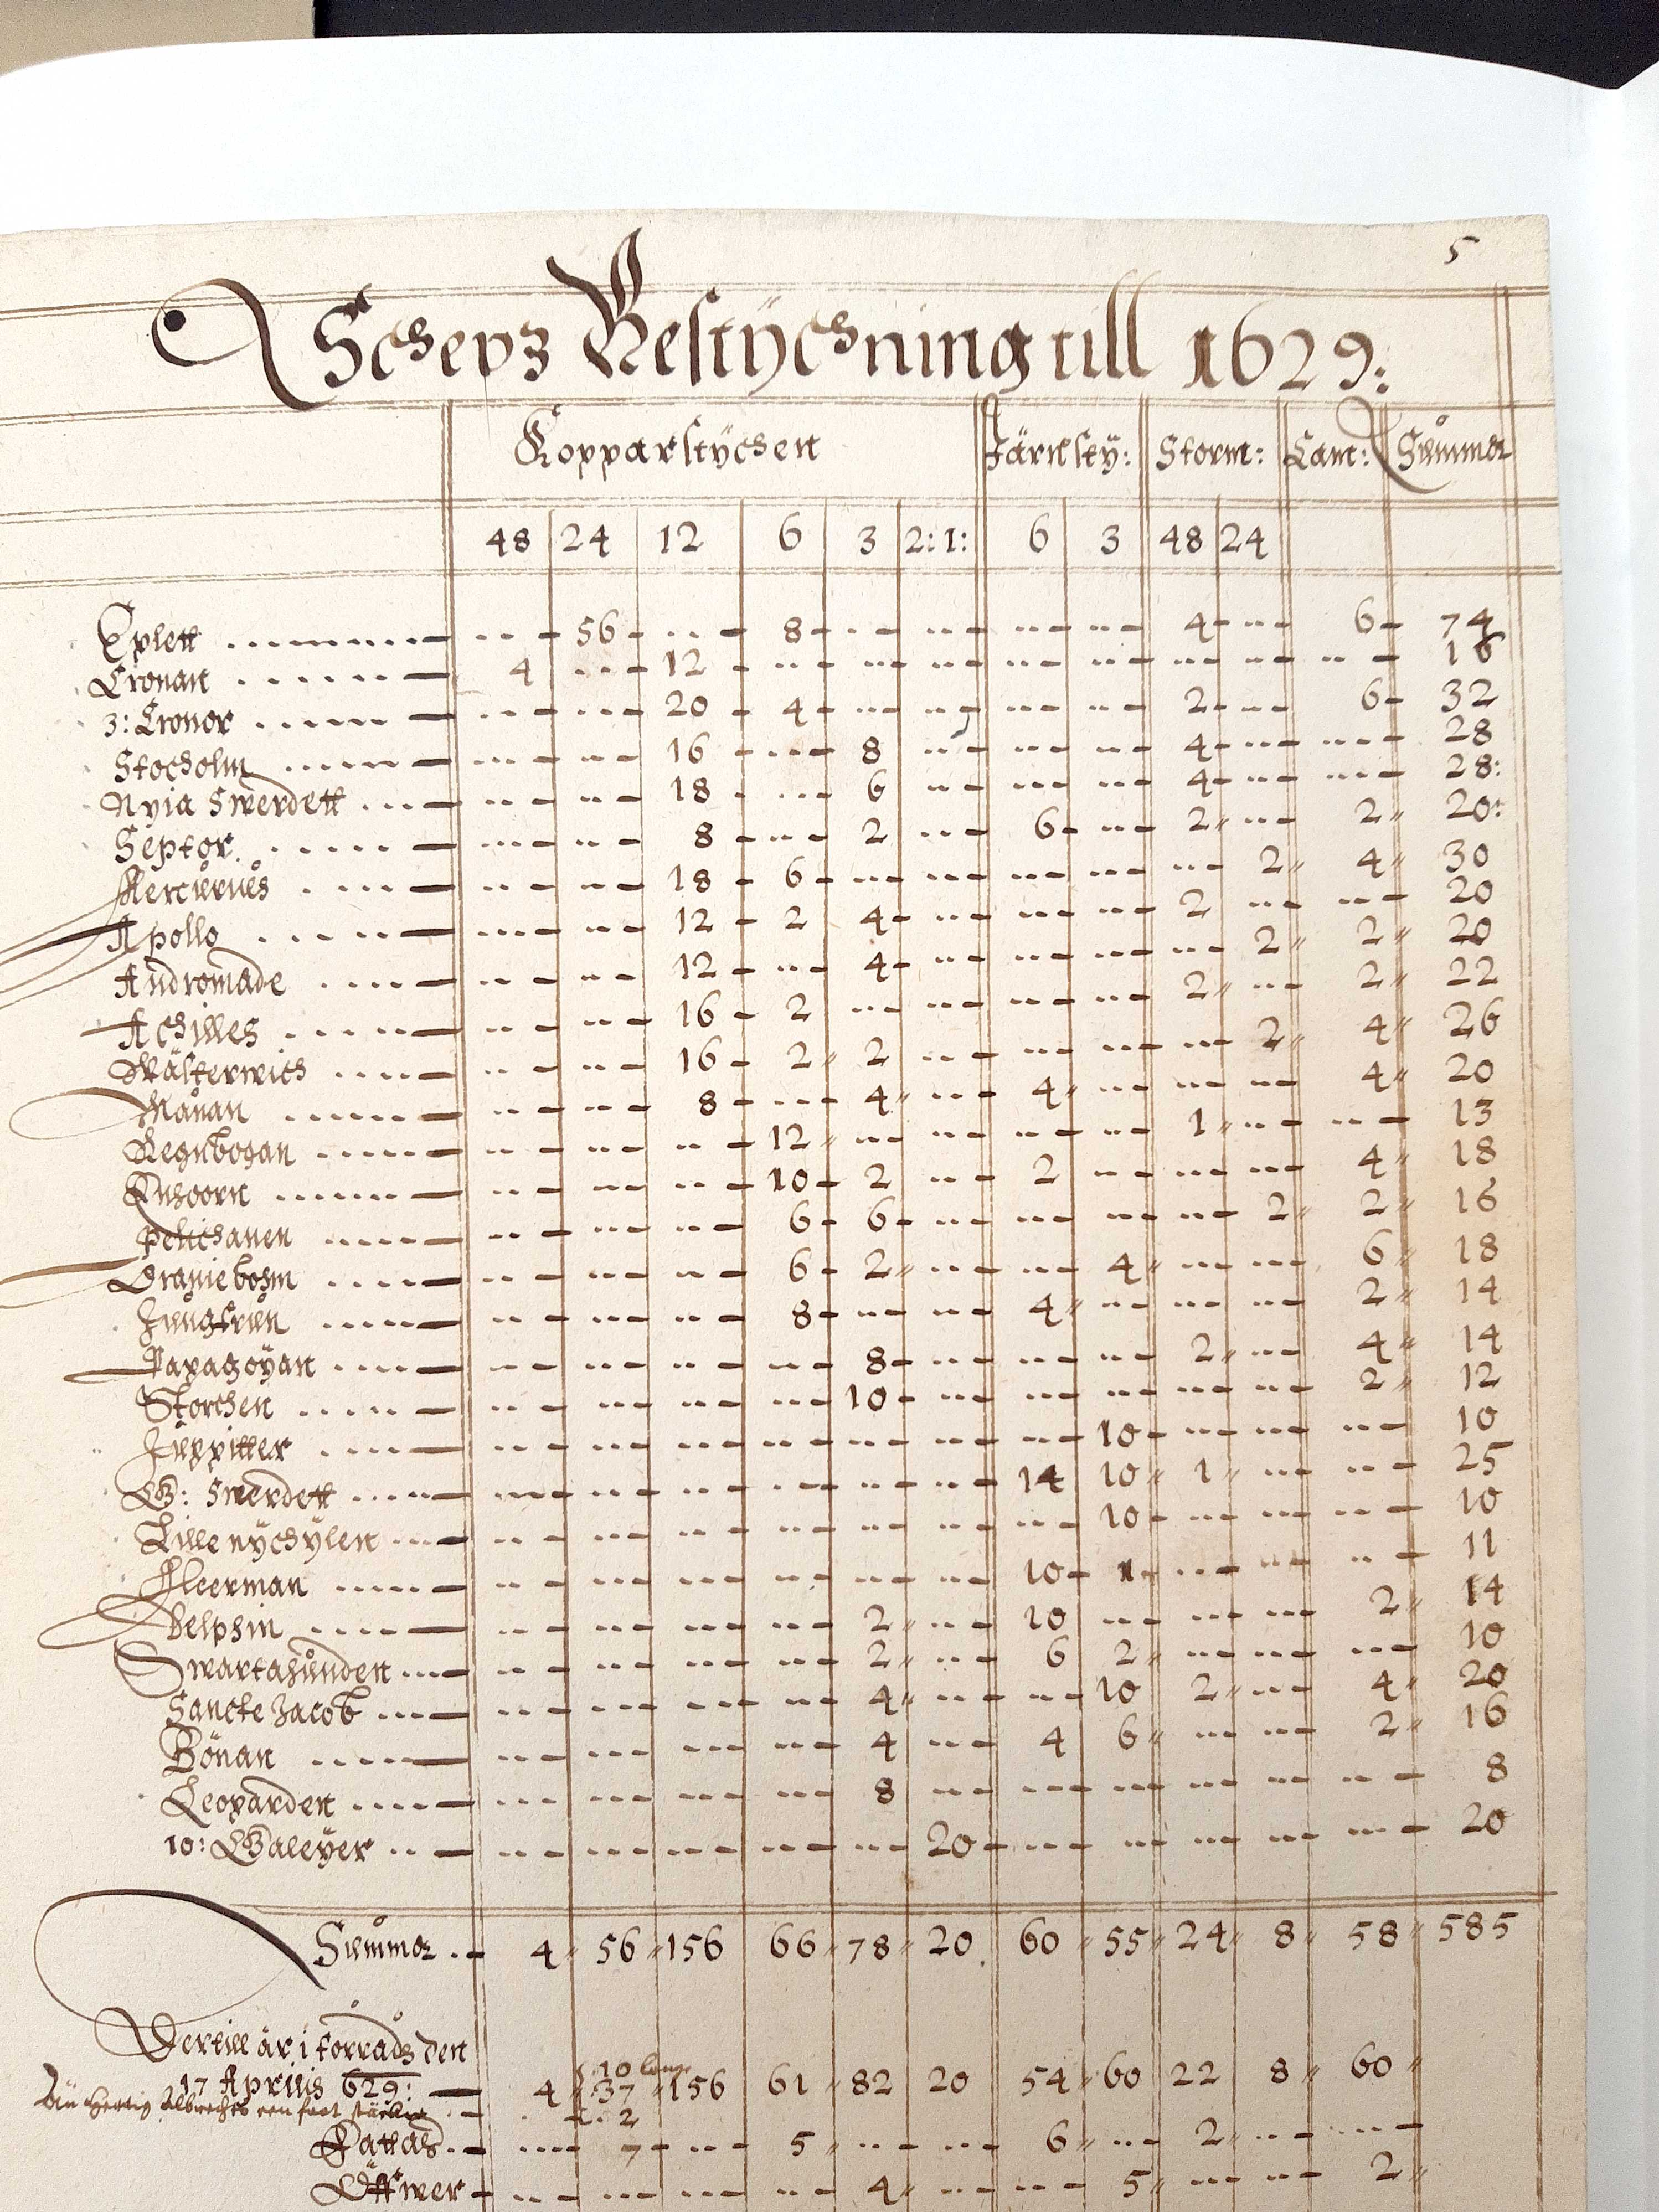 5
Schepz Bestychning till 1629:
Kopparstychen Järnsty: Storm: Cam: Summor
48 24 12 6 3 2:1: 6 3 48 24
Äplett 56 8 4 6 74
Cronan 4 12 16
3: Cronor 20 4 2 6 32
Stocholm 16 8 4 28
Nyia Swerdett 18 6 4 28:
Septor 8 2 6 2 2 20:
Mercurius 18 6 2 4 30
Apollo 12 2 4 2 20
Andromade 12 4 2 2 20
Achilles 16 2 2 2 22
Wästerwich 16 2 2 2 4 26
Månan 8 4 4 4 20
Regnbogan 12 1 13
Enhoorn 10 2 2 4 18
Pelichanen 6 6 2 2 16
Oraniebohm 6 2 4 6 18
Jungfrun 8 4 2 14
Papagoyan 8 2 4 14
Storchen 10 2 12
Juppitter 10 10
G: Swerdett 14 10 1 25
Lille nychylen 10 10
Meerman 10 1 11
Delphin 2 10 2 14
Swartahunden 2 6 2 10
Sancte Jacob 4 10 2 4 20
Bönan 4 4 6 2 16
Leoparden 8 8
10: Galeyer 20 20
Summor 4 56 156 66 78 20 60 55 24 8 58 585
Dertill är i förrådz den
10
17 Aprilis 629: 4 37 156 61 82 20 54 60 22 8 60
2
Fattas 7 5 6 2
Öffwer 4 5 2